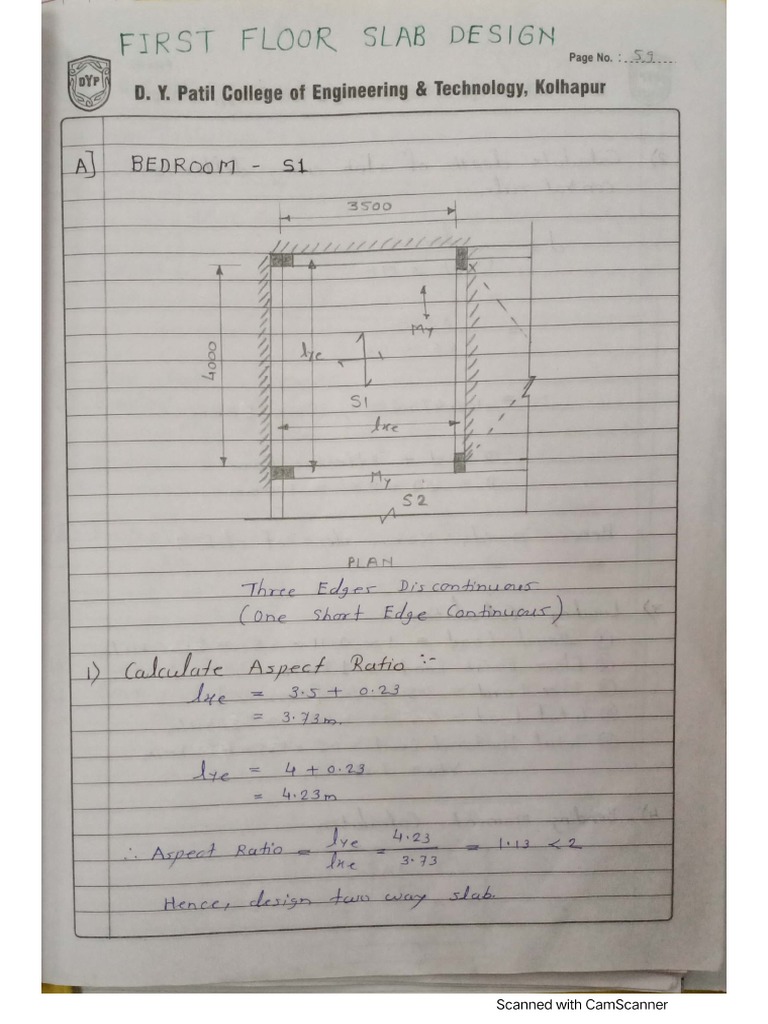 FIRST FLOOR SLAB DESIGN
Page No. : 59
DYP
D. Y. Patil College of Engineering & Technology, Kolhapur
A] BEDROOM - S1
3500
My
4000
lye
S1
lxe
My
S2
PLAN
Three Edges Discontinuous
(One Short Edge Continuous)
1) Calculate Aspect Ratio :-
lxe = 3.5 + 0.23
= 3.73m.
lye = 4 + 0.23
= 4.23m
∴ Aspect Ratio = lye / lxe = 4.23 / 3.73 = 1.13 < 2
Hence, design two way slab.
Scanned with CamScanner